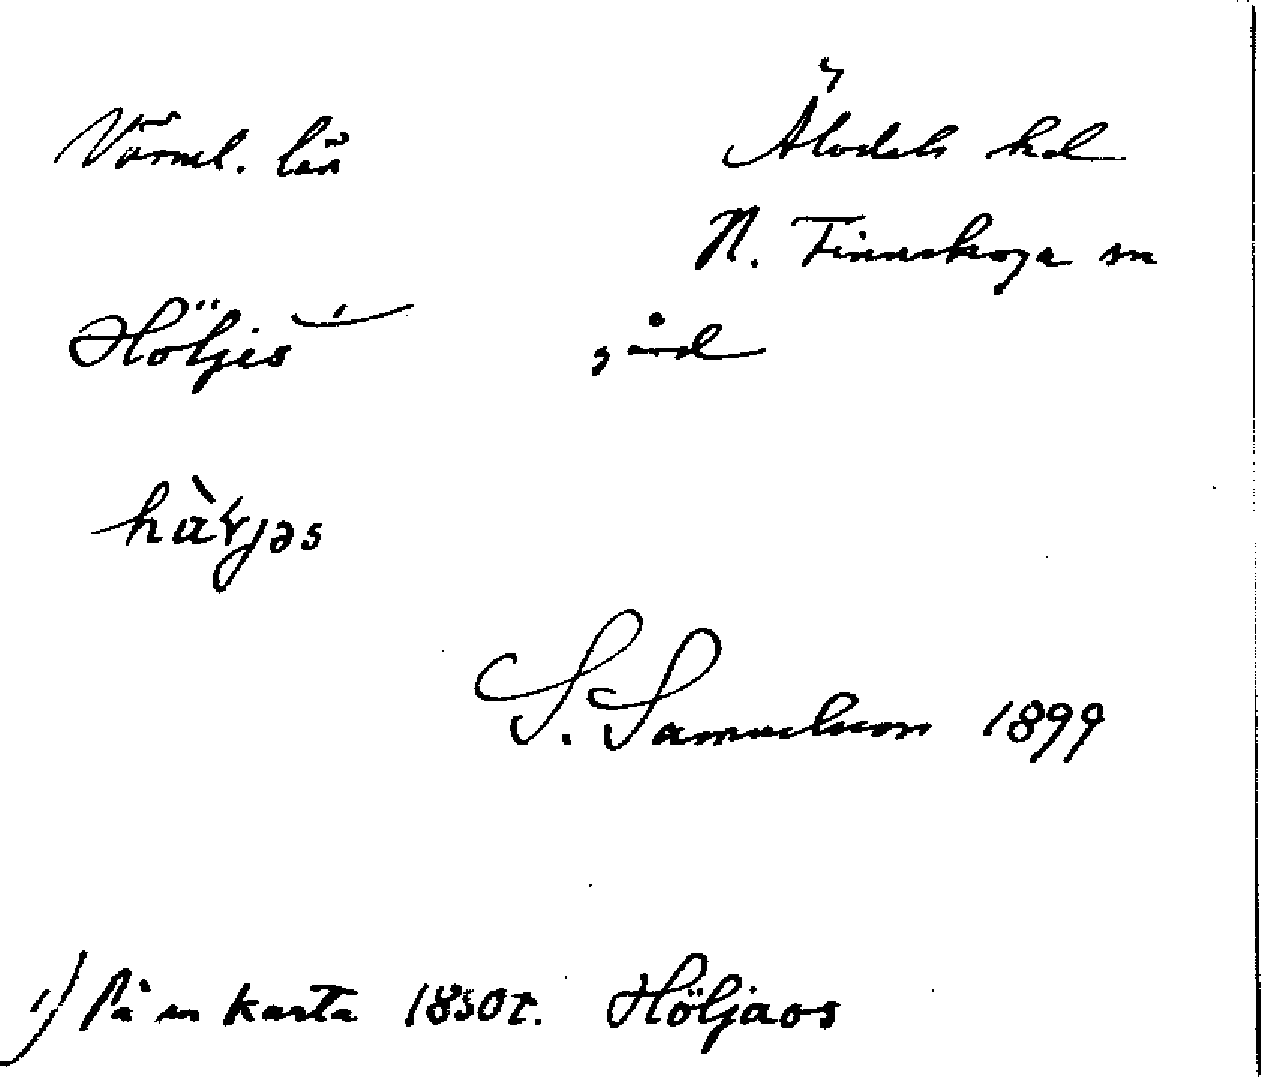 Värml. län Älvdals hd
N. Finnskoga sn
Höljes 1) gård
S. Samuelsson 1899
1) På en karta 1850t. Höljaos